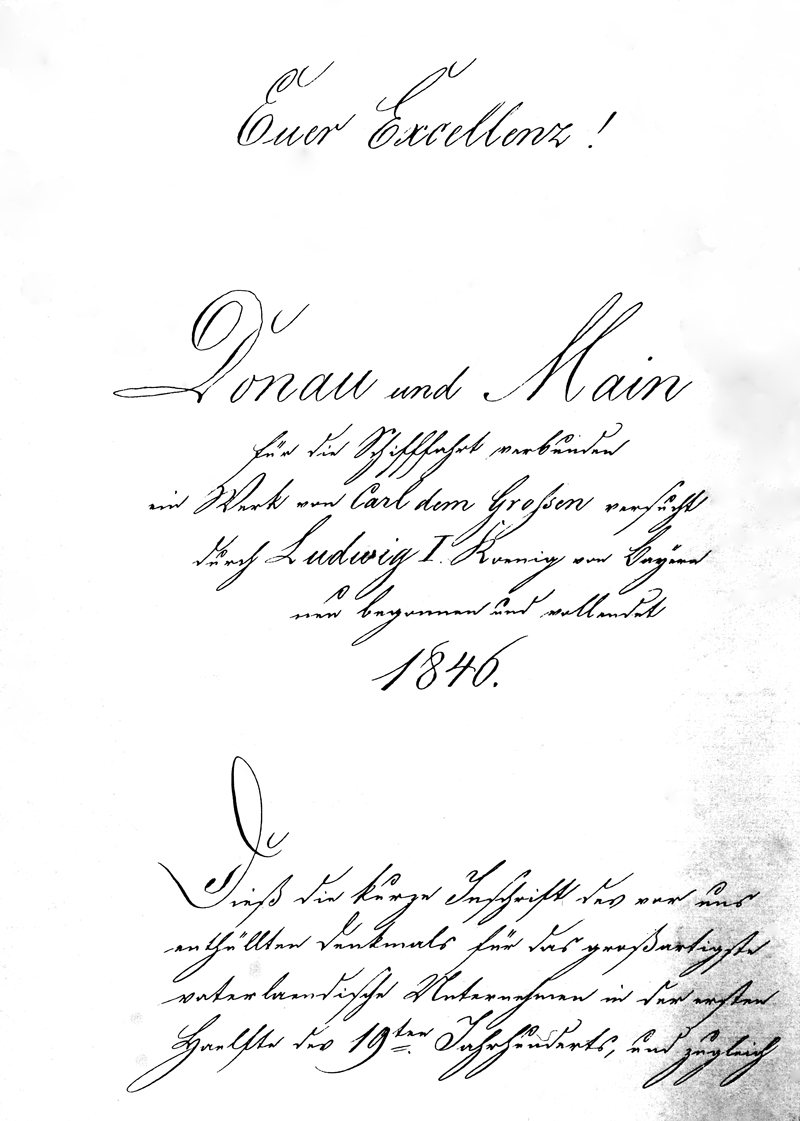 Euer Excellenz!
Donau und Main
für die Schifffahrt verbunden
ein Werk von Carl dem Grossen versucht
durch Ludwig I. Koenig von Bayern
neu begonnen und vollendet
1846.
Dieß die kurze Inschrift des vor uns
enthüllten Denkmals für das großartigste
vaterlaendische Unternehmen in der ersten
Haelfte des 19ten Jahrhunderts, und zugleich